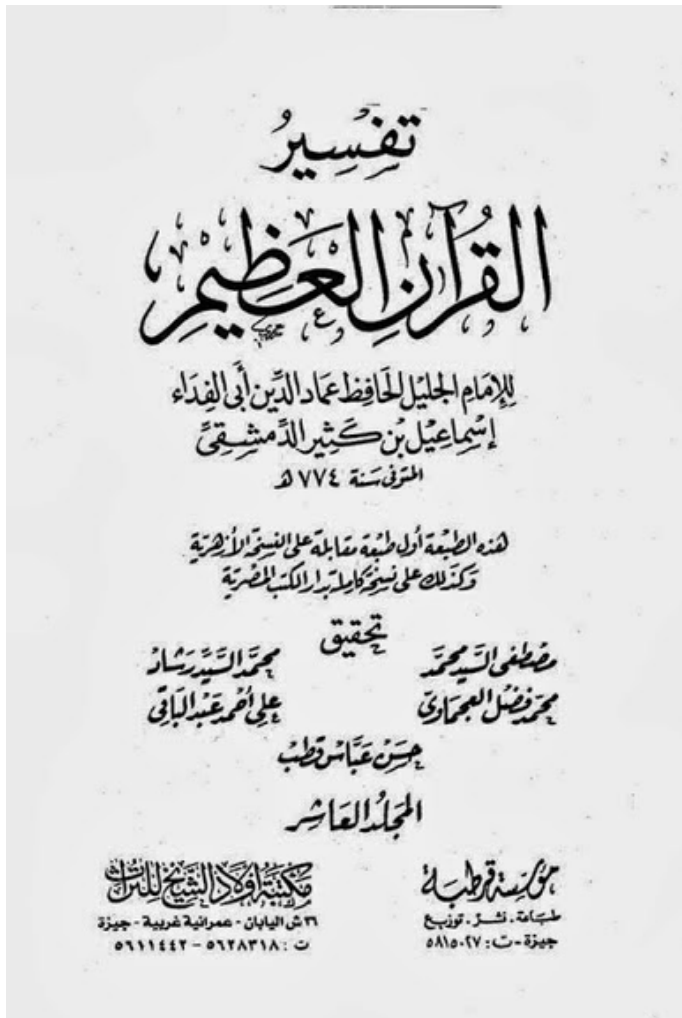 تفسير
القرآن العظيم
للإمام الجليل الحافظ عماد الدين أبي الفداء
إسماعيل بن كثير الدمشقي
المتوفى سنة ٧٧٤ هـ
هذه الطبعة أول طبعة مقابلة على النسخة الأزهرية
وكذلك على نسخة كاملة بدار الكتب المصرية
تحقيق
مصطفى السيد محمد محمد السيد رشاد
محمد فضل العجماوي علي أحمد عبد الباقي
حسن عباس قطب
المجلد العاشر
مؤسسة قرطبة
طباعة . نشر . توزيع
جيزة - ت : ٥٨١٥٠٢٧
مكتبة أولاد الشيخ للتراث
٣٦ ش اليابان - عمرانية غربية - جيزة
ت : ٥٦٢٨٣١٨ - ٥٦١١٤٤٢